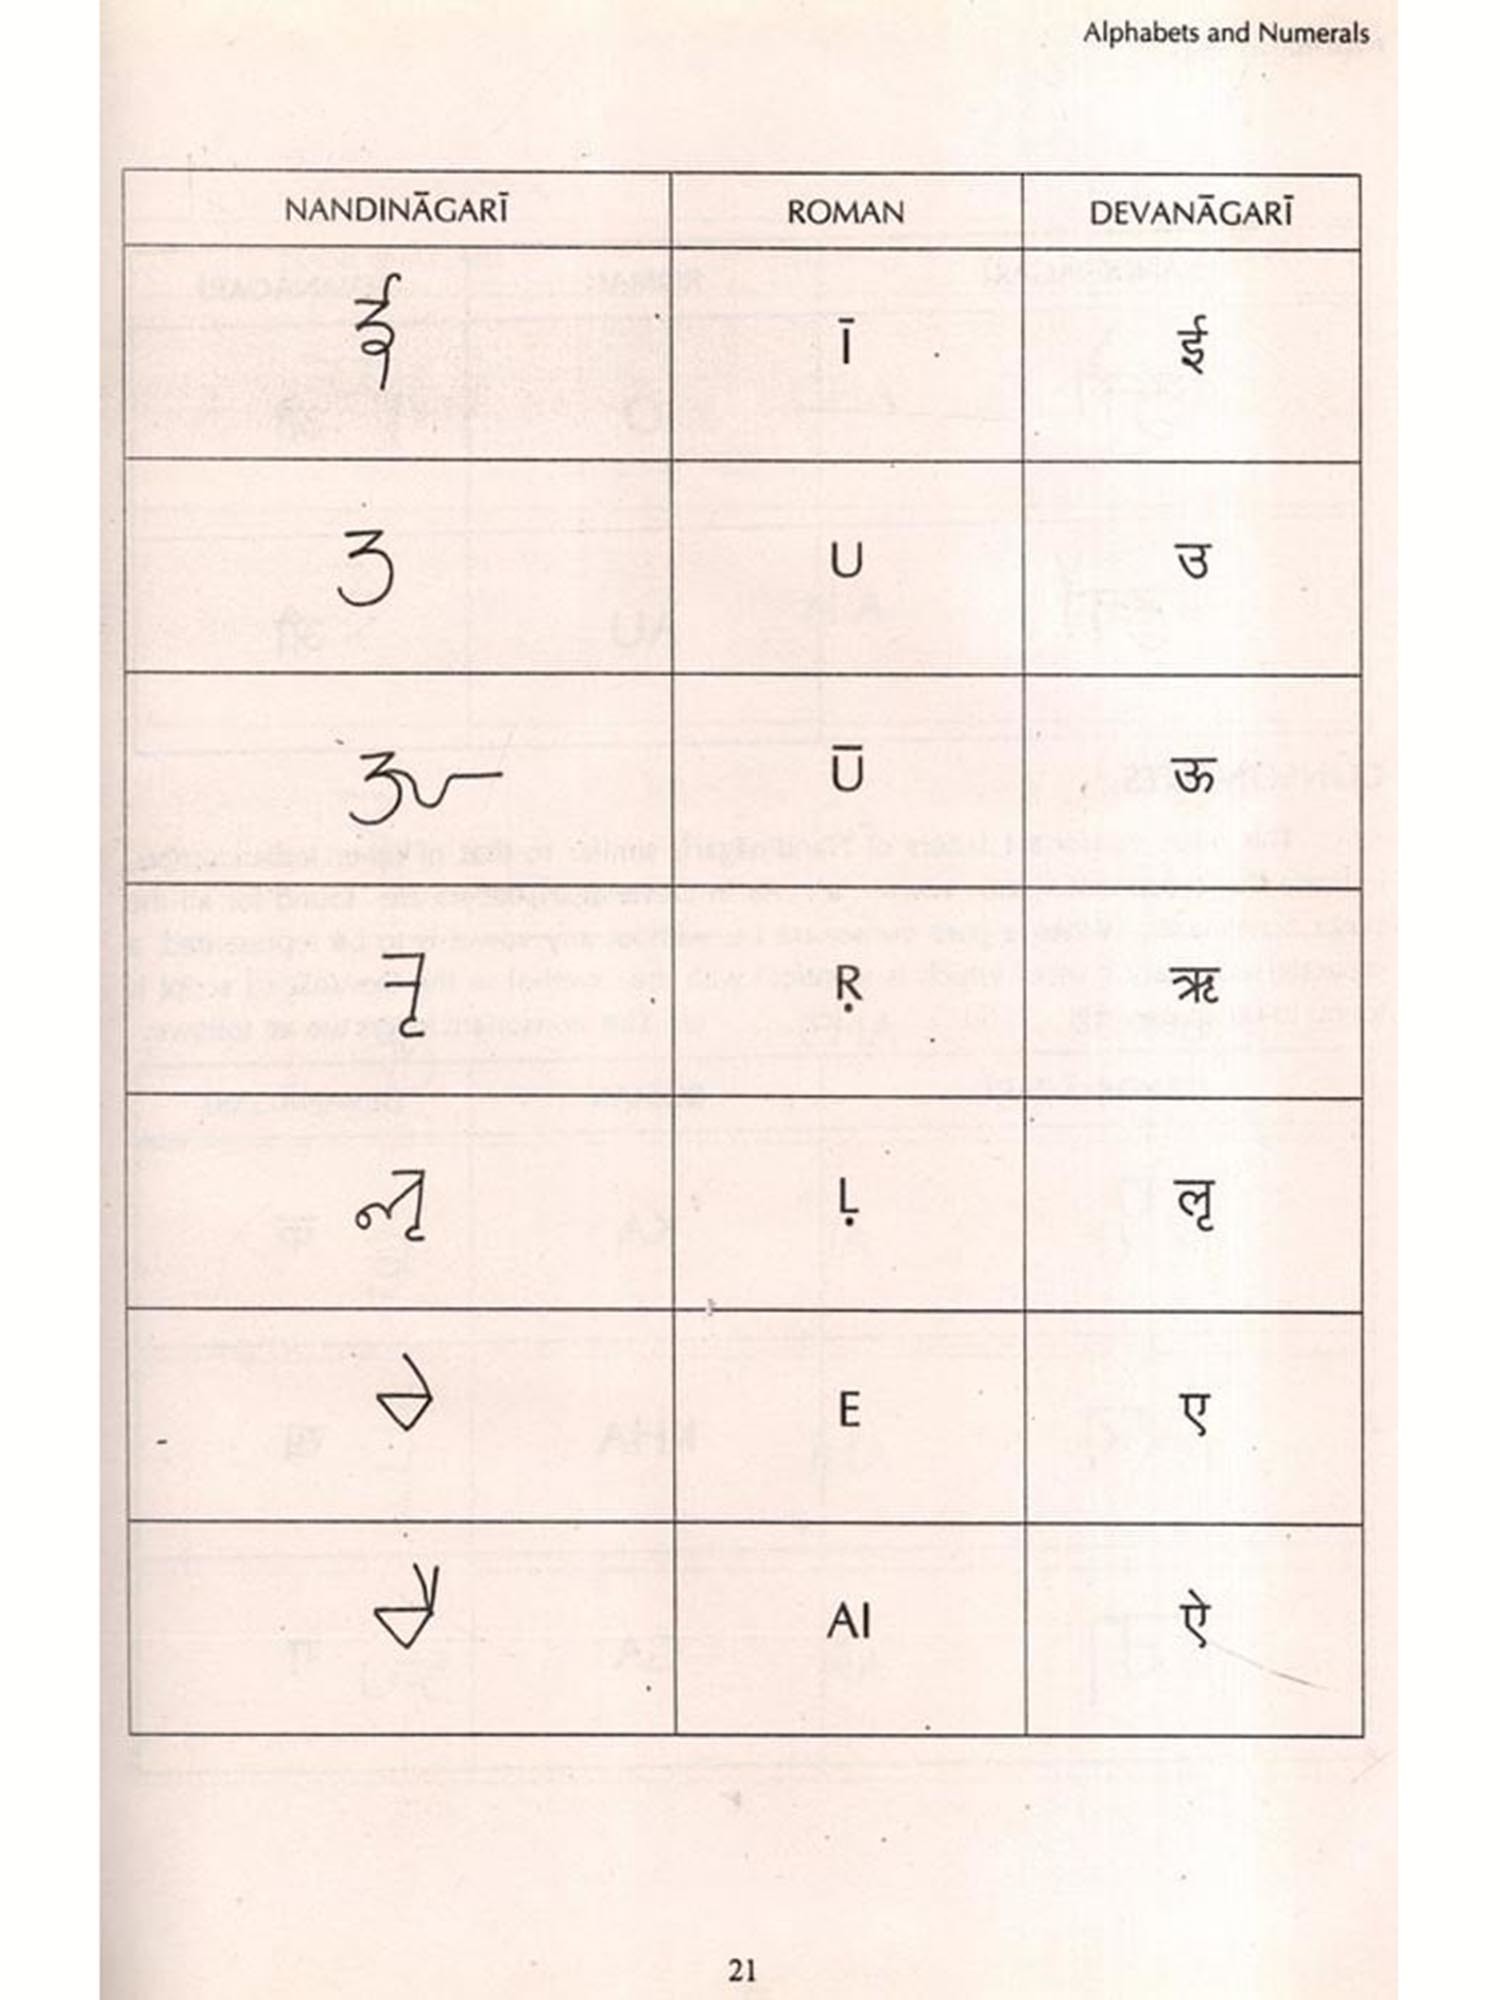 Alphabets and Numerals
NANDINĀGARĪ ROMAN DEVANĀGARĪ
Ī ई
U उ
Ū ऊ
Ṛ ऋ
Ḷ लृ
E ए
AI ऐ
21